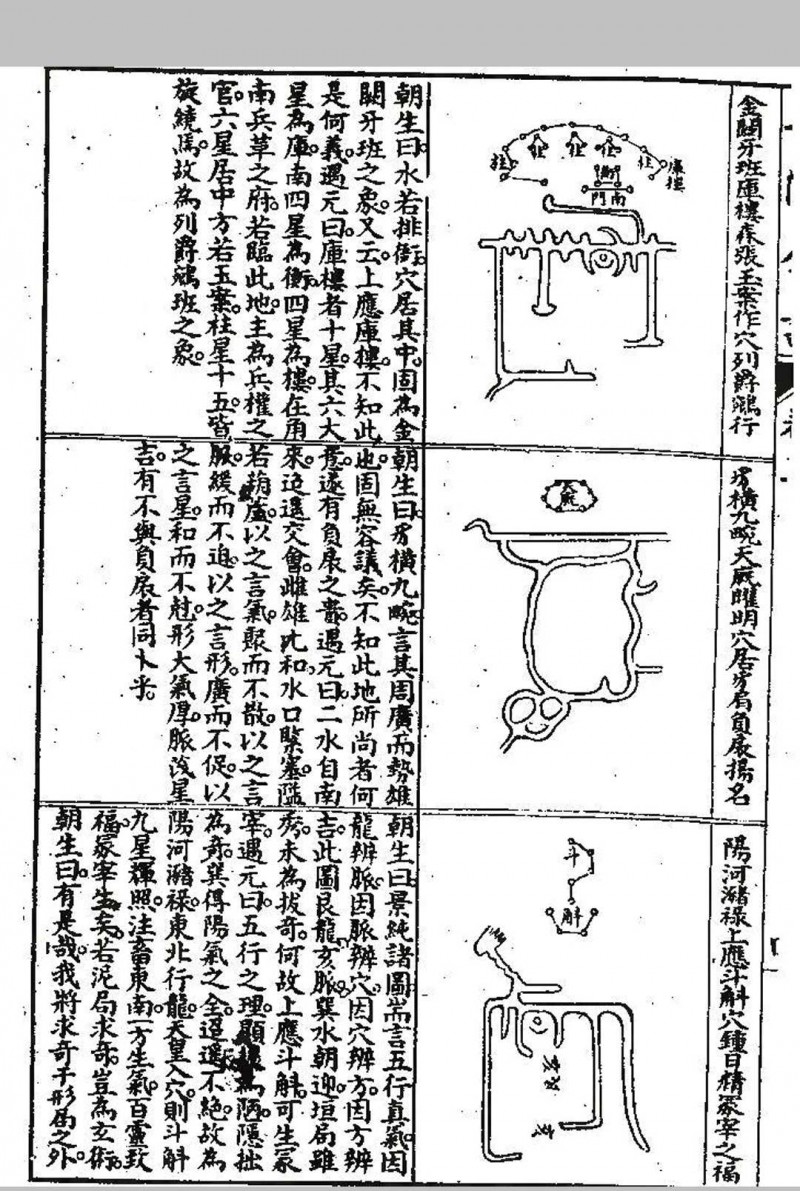 金闕牙班庫樓森張玉案作穴列爵鵷行
庫樓
柱
柱
柱
柱
柱
衡
南門
朝生曰水若排衙穴居其中固為金
闕牙班之象又云上應庫樓不知此
是何義遇元曰庫樓者十星其六大
星為庫南四星為樓在角
南兵革之府若臨此地主為兵權之
官六星居中方若玉案柱星十五皆
旋繞焉故為列爵鵷班之象
橫九畹天廐曜明穴居肩負扆揚名
天廐
朝生曰橫九畹言其周廣而勢雄
也固無容議矣不知此地所尚者何
遂有負扆之貴遇元曰二水自南
來迢遞交會雌雄允和水口緊塞隘
若葫蘆以之言氣聚而不散以之言
脈緩而不迫以之言形廣而不促以
之言星和而不尅形大氣厚脈淺星
吉有不與負扆者同卜乎
陽河瀦祿上應斗斛穴鍾日精冢宰之福
斗
斛
朝生曰景純諸圖耑言五行真氣因
龍辨脈因脈辨穴因穴辨方因方辨
吉此圖艮龍亥脈巽水朝迎垣局雖
秀未為拔奇何故上應斗斛可生冢
宰遇元曰五行之理顯為陋隱拙
為奇巽得陽氣之全迢遞不絕故為
陽河瀦祿東北行龍天皇入穴則斗斛
九星輝照注畜東南一方生氣百靈致
福冢宰生矣若泥局求奇豈為玄術
朝生曰有是哉我將求奇于形局之外